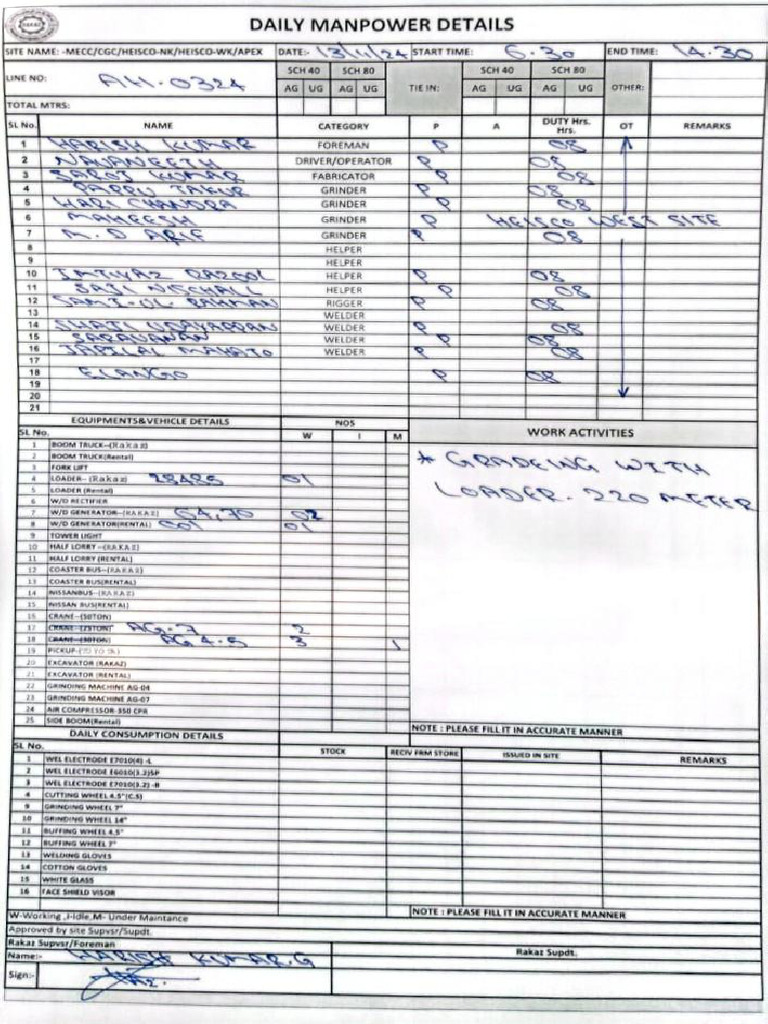 DAILY MANPOWER DETAILS
SITE NAME: -MECC/CGC/HEISCO-NK/HEISCO-WK/APEX DATE:- 13/11/24 START TIME: 6.30 END TIME: 14.30
LINE NO: AH-0324 SCH 40 SCH 80 TIE IN: SCH 40 SCH 80 OTHER:
AG UG AG UG AG UG AG UG
TOTAL MTRS:
SL No. NAME CATEGORY P A DUTY Hrs. Hrs. OT REMARKS
1 HARISH KUMAR FOREMAN P 08
2 NAVANEETH DRIVER/OPERATOR P 08
3 SAROJ KUMAR FABRICATOR P 08
4 PAPPU GRINDER P 08
5 HARI CHANDRA GRINDER P 08
6 MAHEESH GRINDER P HEISCO WEST SITE
7 M.D ARIF GRINDER P 08
8 HELPER
9 HELPER
10 IMTIYAZ HELPER P 08
11 HELPER P 08
12 SAMI-UL-RAHMAN RIGGER P 08
13 WELDER
14 WELDER P 08
15 SARAVANAN WELDER P 08
16 MAHATO WELDER P 08
17
18 ELANGO P 08
19
20
21
EQUIPMENTS&VEHICLE DETAILS NOS WORK ACTIVITIES
SL No. W I M
1 BOOM TRUCK--(Rakaz)
2 BOOM TRUCK(Rental)
3 FORK LIFT
4 LOADER- (Rakaz) 28485 01
5 LOADER (Rental)
6 W/D RECTIFIER
7 W/D GENERATOR--(RAKAZ) 64,70 02
8 W/D GENERATOR(RENTAL) 01
9 TOWER LIGHT
10 HALF LORRY --(RAKAZ)
11 HALF LORRY (RENTAL)
12 COASTER BUS--(RAKAZ)
13 COASTER BUS(RENTAL)
14 NISSANBUS--(RAKAZ)
15 NISSAN BUS(RENTAL)
16 CRANE--(50TON)
17 CRANE--(25TON) AG-7 2
18 CRANE--(30TON) AG 4-5 3 1
19 PICKUP
20 EXCAVATOR (RAKAZ)
21 EXCAVATOR (RENTAL)
22 GRINDING MACHINE AG-04
23 GRINDING MACHINE AG-07
24 AIR COMPRESSOR-350 CFM
25 SIDE BOOM(Rental)
* GRADEING WITH
LOADER. 220 METER
NOTE : PLEASE FILL IT IN ACCURATE MANNER
DAILY CONSUMPTION DETAILS
SL No. STOCK RECIV FRM STORE ISSUED IN SITE REMARKS
1 WEL ELECTRODE E7010(4)-L
2 WEL ELECTRODE E6010(3.2)SP
3 WEL ELECTRODE E7010(3.2)-B
4 CUTTING WHEEL 4.5"(C.S)
9 GRINDING WHEEL 7"
10 GRINDING WHEEL 14"
11 BUFFING WHEEL 4.5"
12 BUFFING WHEEL 7"
13 WELDING GLOVES
14 COTTON GLOVES
15 WHITE GLASS
16 FACE SHIELD VISOR
NOTE : PLEASE FILL IT IN ACCURATE MANNER
W-Working ,I-Idle,M- Under Maintance
Approved by site Supvsr/Supdt.
Rakaz Supvsr/Foreman Rakaz Supdt.
Name:- HARISH KUMAR.G
Sign:-